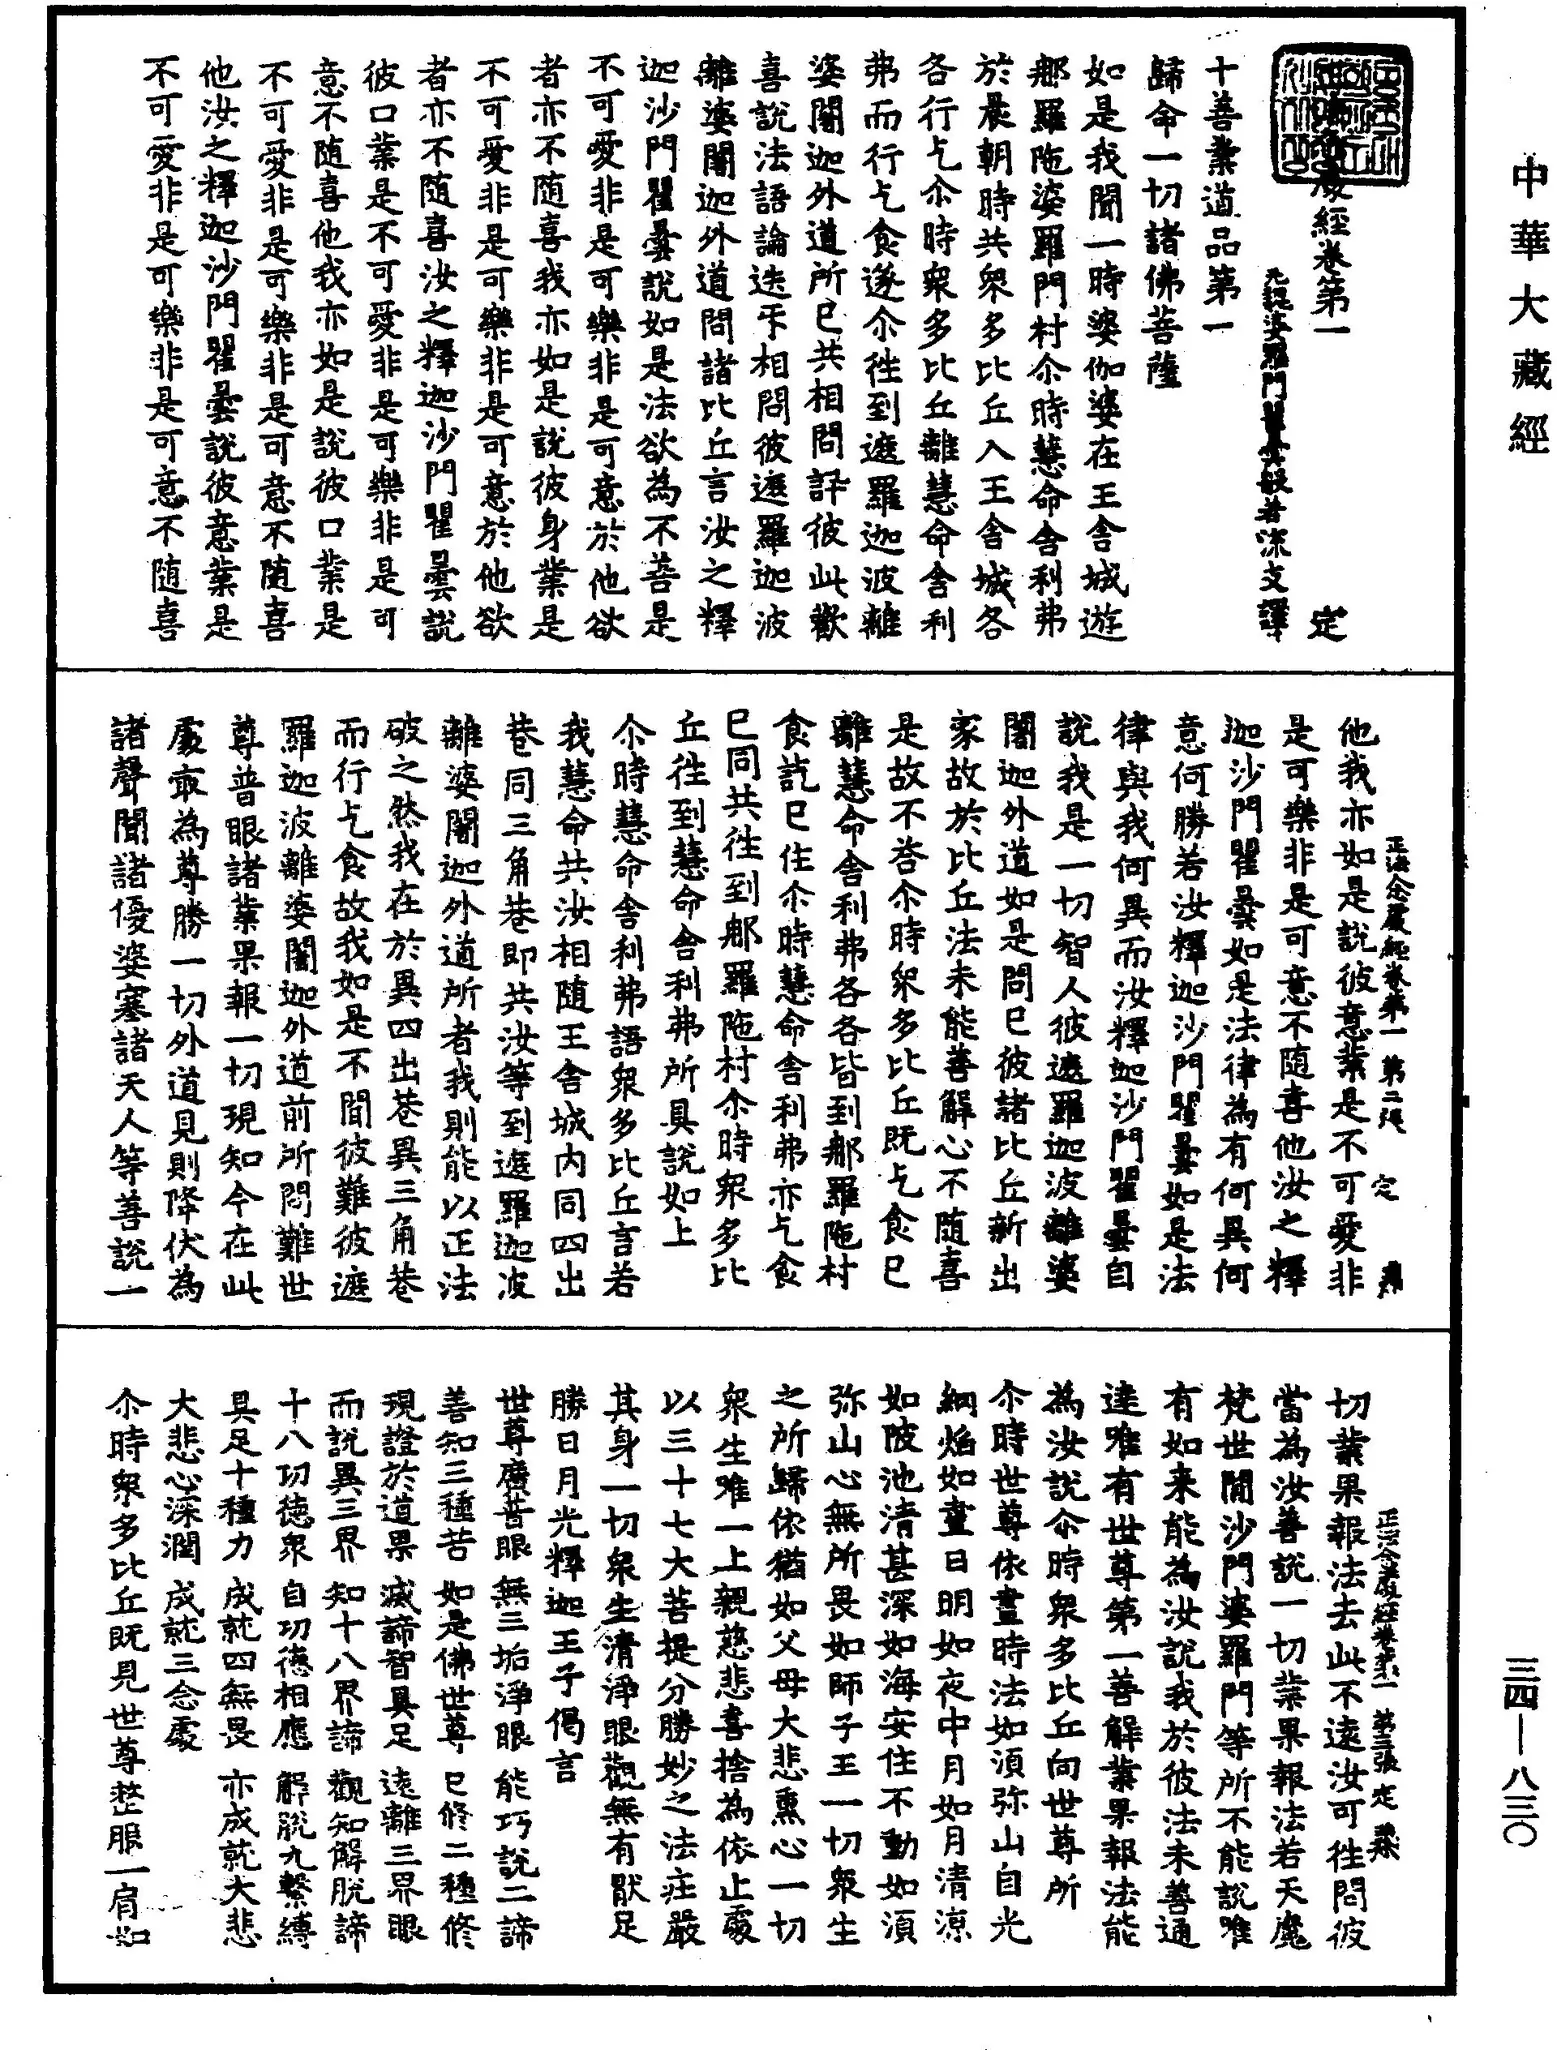 中華大藏經
三四—八三〇
處經卷第一 定
元魏婆羅門瞿曇般若流支譯
十善業道品第一
歸命一切諸佛菩薩
如是我聞一時婆伽婆在王舍城遊
那羅陁婆羅門村尒時慧命舍利弗
於晨朝時共衆多比丘入王舍城各
各行乞尒時衆多比丘離慧命舍利
弗而行乞食遂尒徃到遮羅迦波離
婆闍迦外道所已共相問訊彼此歡
喜說法語論迭㸦相問彼遮羅迦波
離婆闍迦外道問諸比丘言汝之釋
迦沙門瞿曇說如是法欲為不善是
不可愛非是可樂非是可意於他欲
者亦不随喜我亦如是說彼身業是
不可愛非是可樂非是可意於他欲
者亦不随喜汝之釋迦沙門瞿曇說
彼口業是不可愛非是可樂非是可
意不随喜他我亦如是說彼口業是
不可愛非是可樂非是可意不随喜
他汝之釋迦沙門瞿曇說彼意業是
不可愛非是可樂非是可意不随喜
正法念處經卷第一 第二張 定
他我亦如是說彼意業是不可愛非
是可樂非是可意不随喜他汝之釋
迦沙門瞿曇如是法律為有何異何
意何勝若汝釋迦沙門瞿曇如是法
律與我何異而汝釋迦沙門瞿曇自
說我是一切智人彼遮羅迦波離婆
闍迦外道如是問已彼諸比丘新出
家故於比丘法未能善解心不随喜
是故不荅尒時衆多比丘既乞食已
離慧命舍利弗各各皆到那羅陁村
食訖已住尒時慧命舍利弗亦乞食
已同共徃到那羅陁村尒時衆多比
丘徃到慧命舍利弗所具說如上
尒時慧命舍利弗語衆多比丘言若
我慧命共汝相随王舍城內同四出
巷同三角巷即共汝等到遮羅迦波
離婆闍迦外道所者我則能以正法
破之然我在於異四出巷異三角巷
而行乞食故我如是不聞彼難彼遮
羅迦波離婆闍迦外道前所問難世
尊普眼諸業果報一切現知今在此
處㝡為尊勝一切外道見則降伏為
諸聲聞諸優婆塞諸天人等善說一
正法念處經卷第一 第三張 定
切業果報法去此不遠汝可徃問彼
當為汝善說一切業果報法若天魔
梵世間沙門婆羅門等所不能說唯
有如来能為汝說我於彼法未善通
達唯有世尊第一善解業果報法能
為汝說尒時衆多比丘向世尊所
尒時世尊依晝時法如須弥山自光
網焰如晝日明如夜中月如月清涼
如陂池清甚深如海安住不動如須
弥山心無所畏如師子王一切衆生
之所歸依猶如父母大悲熏心一切
衆生唯一上親慈悲喜捨為依止處
以三十七大菩提分勝妙之法庄嚴
其身一切衆生清淨眼觀無有猒足
勝日月光釋迦王子偈言
世尊廣普眼 無三垢淨眼 能巧說二諦
善知三種苦 如是佛世尊 已修二種修
現證於道果 滅諦智具足 遠離三界眼
而說異三界 知十八界諦 觀知解脫諦
十八功德衆 自功德相應 解脫九繫縛
具足十種力 成就四無畏 亦成就大悲
大悲心深潤 成就三念處
尒時衆多比丘既見世尊整服一肩如